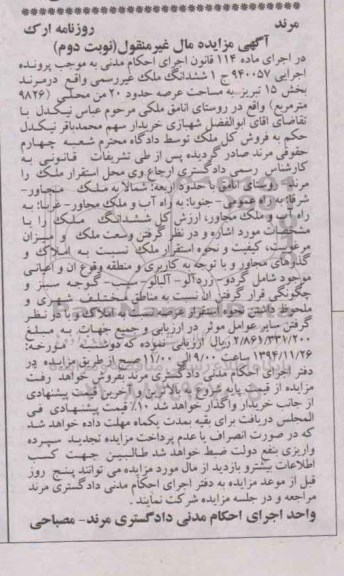 مرند روزنامه ارک
آگهی مزایده مال غیرمنقول(نوبت دوم)
در اجرای ماده ۱۱۴ قانون اجرای احکام مدنی به موجب پرونده
اجرایی ۹۴۰۰۵۷ ج ۱ ششدانگ ملک غیررسمی واقع درمرند
بخش ۱۵ تبریز به مساحت عرصه حدود ۲۰ من محلی (۹۸۲۶
مترمربع) واقع در روستای انامق ملکی مرحوم عباس نیکدل با
تقاضای اقای ابوالفضل شهبازی خریدار سهم محمدباقر نیکدل
حکم به فروش کل ملک توسط دادگاه محترم شعبه چهارم
حقوقی مرند صادر گردیده پس از طی تشریفات قانونی به
کارشناس رسمی دادگستری ارجاع وی محل استقرار ملک را
مرند- روستای انامق با حدود اربعه: شمالا به ملک مجاور-
شرقا: به راه عمومی - جنوبا: به راه آب و ملک مجاور- غربا: به
راه آب و ملک مجاور، ارزش کل ششدانگ ملک را با
مشخصات مورد اشاره و در نظر گرفتن وسعت ملک و میزان
مرغوبیت، کیفیت و نحوه استقرار ملک نسبت به املاک و
گذرهای مجاور و با توجه به کاربری و منطقه وقوع ان و اعیانی
موجود شامل گردو- زردآلو- آلبالو- سیب- گوجه سبز و
چگونگی قرار گرفتن ان نسبت به مناطق مختلف شهری و
ملحوظ داشتن نحوه استقرار عرصه نسبت به املاک و با در نظر
گرفتن سایر عوامل موثر در ارزیابی و جمیع جهات به مبلغ
۲/۸۶۱/۳۳۱/۲۰۰ ریال ارزیابی نموده که دوشنبه مورخه:
۱۳۹۴/۱۱/۲۶ ساعت ۹/۰۰ الی ۱۱/۰۰ صبح از طریق مزایده در
دفتر اجرای احکام مدنی دادگستری مرند بفروش خواهد رفت
مزایده از قیمت پایه شروع به بالاترین و آخرین قیمت پیشنهادی
از جانب خریدار واگذار خواهد شد ۱۰٪ قیمت پیشنهادی فی
المجلس دریافت برای بقیه بمدت یکماه مهلت داده خواهد شد
که در صورت انصراف یا عدم پرداخت مزایده تجدید سپرده
واریزی بنفع دولت ضبط خواهد شد طالبین جهت کسب
اطلاعات بیشترو بازدید از مال مورد مزایده می توانند پنج روز
قبل از موعد مزایده به دفتر اجرای احکام مدنی دادگستری مرند
مراجعه و در جلسه مزایده شرکت نمایند.
واحد اجرای احکام مدنی دادگستری مرند- مصباحی